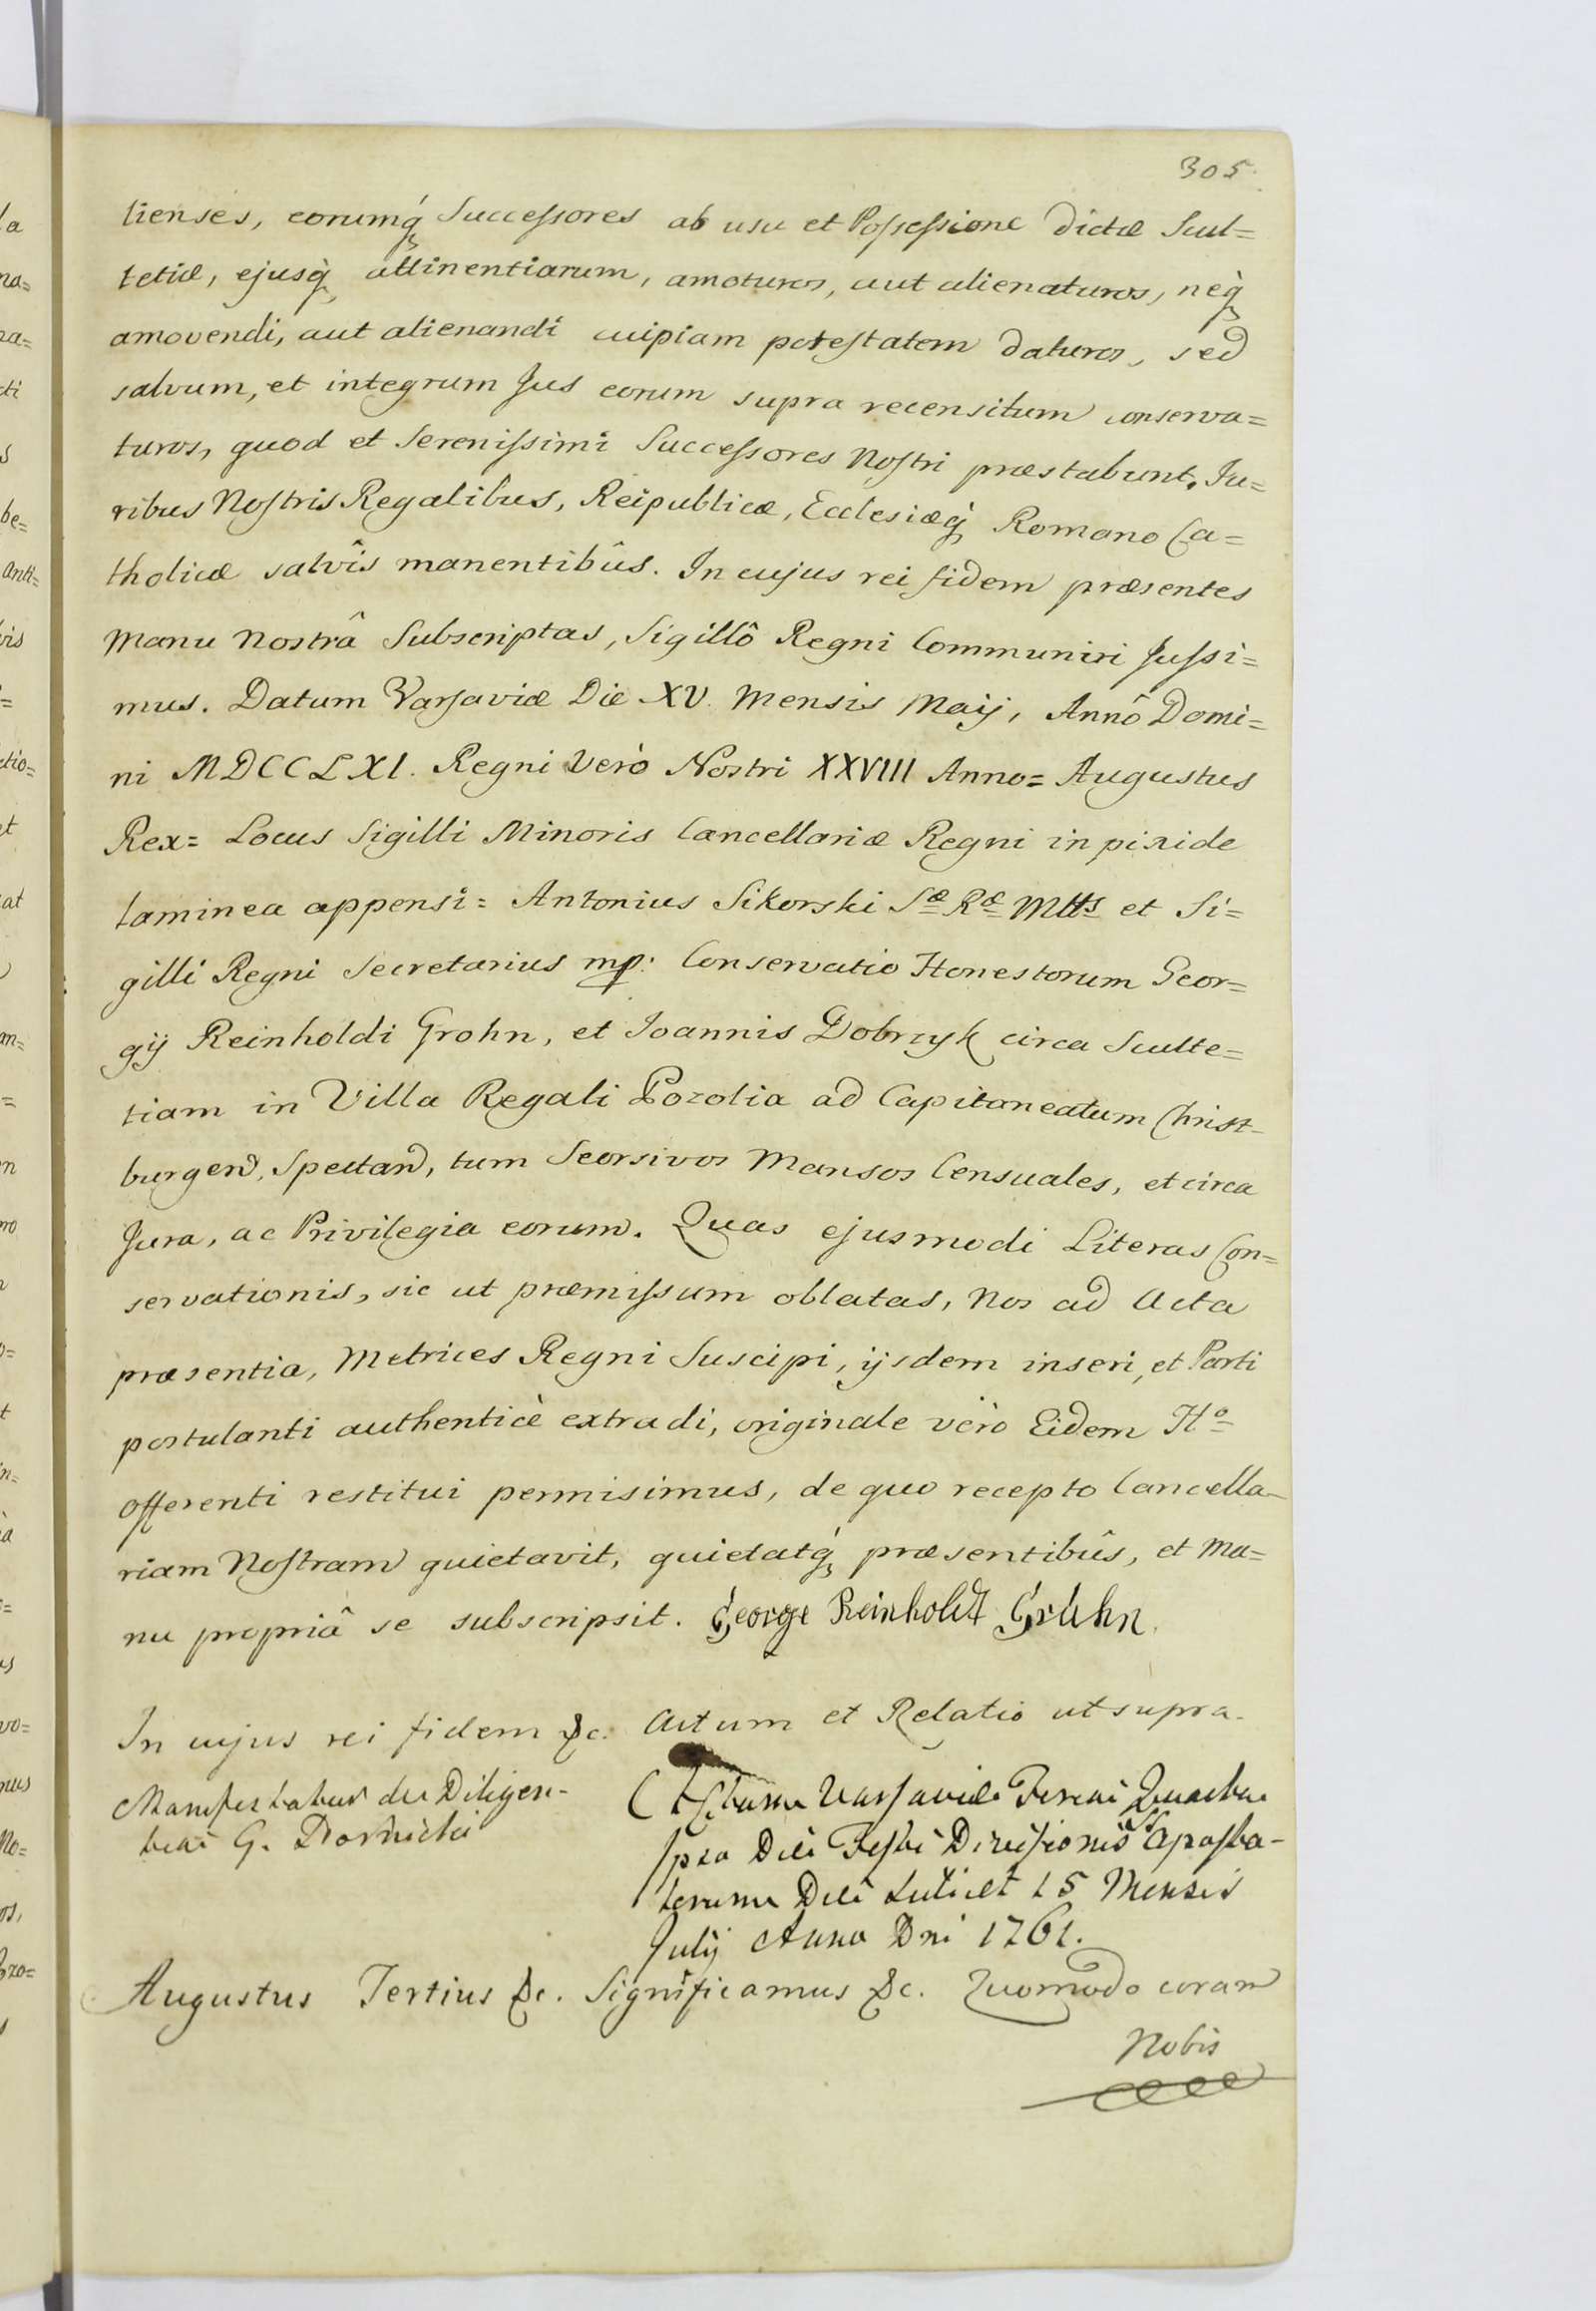 305.
lienses, eorumq́ Successores ab usu et Possessione dictæ Scul=
tetiæ, ejusq́ attinentiarum, amoturos, aut alienaturos, neq́
amovendi, aut alienandi cuipiam potestatem daturos, sed
salvum, et integrum Jus eorum supra recensitum conserva=
turos, quod et Serenissimi Successores Nostri præstabunt. Ju=
ribus Nostris Regalibus, Reipublicæ, Ecclesiæq́ Romano Ca=
tholicæ salvîs manentibûs. In cujus rei fidem præsentes
Manu Nostrâ Subscriptas, Sigillô Regni Communiri Jussi=
mus. Datum Varsaviæ Die XV. Mensis Maij, Annô Domi=
ni MDCCLXI. Regni verò Nostri XXVIII Anno= Augustus
Rex= Locus Sigilli Minoris Cancellariæ Regni in pixide
laminea appensi= Antonius Sikorski Sæ Ræ Mtts et Si=
gilli Regni Secretarius mp: Conservatio Honestorum Geor=
gij Reinholdi Grohn, et Joannis Dobrzyk circa Sculte=
tiam in Villa Regali Pozolia ad Capitaneatum Christ-
burgen, Spectan, tum Seorsivos Mansos Censuales, et circa
Jura, ac Privilegia eorum. Quas ejusmodi Literas Con=
servationis, sic ut præmissum oblatas, Nos ad Acta
præsentia, Metrices Regni Suscipi, ijsdem inseri, et Parti
postulanti authenticè extradi, originale vèro Eidem Ho
Offerenti restitui permisimus, de quo recepto Cancella-
riam Nostram quietavit, quietatq́ præsentibûs, et Ma=
nu propriâ se subscripsit. George Reinholdt Grühn.
In cujus rei fidem &c. Actum et Relatio ut supra.
Manifestatur de Diligen-
tiai G.
Actum Varsaviæ Feria Quarta
ipso Die Festi Divisionis Aposto-
lorum Die scilicet 15 Mensis
Julij Anno Dni 1761.
Augustus Tertius &c. Significamus &c. Quomodo coram
Nobis